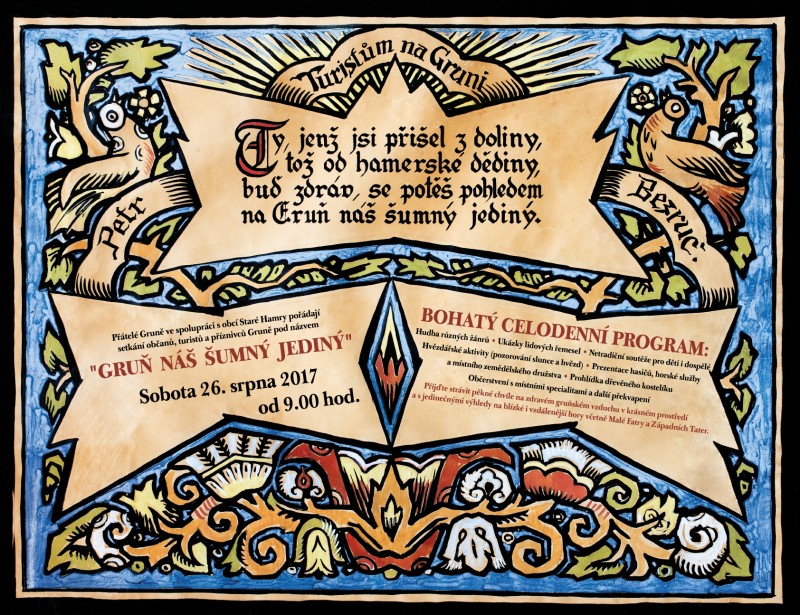 Turistům na Gruni
Ty, jenž jsi přišel z doliny,
tož od hamerské dědiny,
buď zdráv, se potěš pohledem
na Gruň náš šumný jediný.
Petr
Bezruč.
Přátelé Gruně ve spolupráci s obcí Staré Hamry pořádají
setkání občanů, turistů a příznivců Gruně pod názvem
"GRUŇ NÁŠ ŠUMNÝ JEDINÝ"
Sobota 26. srpna 2017
od 9.00 hod.
BOHATÝ CELODENNÍ PROGRAM:
Hudba různých žánrů • Ukázky lidových řemesel • Netradiční soutěže pro děti i dospělé
Hvězdářské aktivity (pozorování slunce a hvězd) • Prezentace hasičů, horské služby
a místního zemědělského družstva • Prohlídka dřevěného kostelíku
Občerstvení s místními specialitami a další překvapení
Přijďte strávit pěkné chvíle na zdravém gruňském vzduchu v krásném prostředí
a s jedinečnými výhledy na blízké i vzdálenější hory včetně Malé Fatry a Západních Tater.